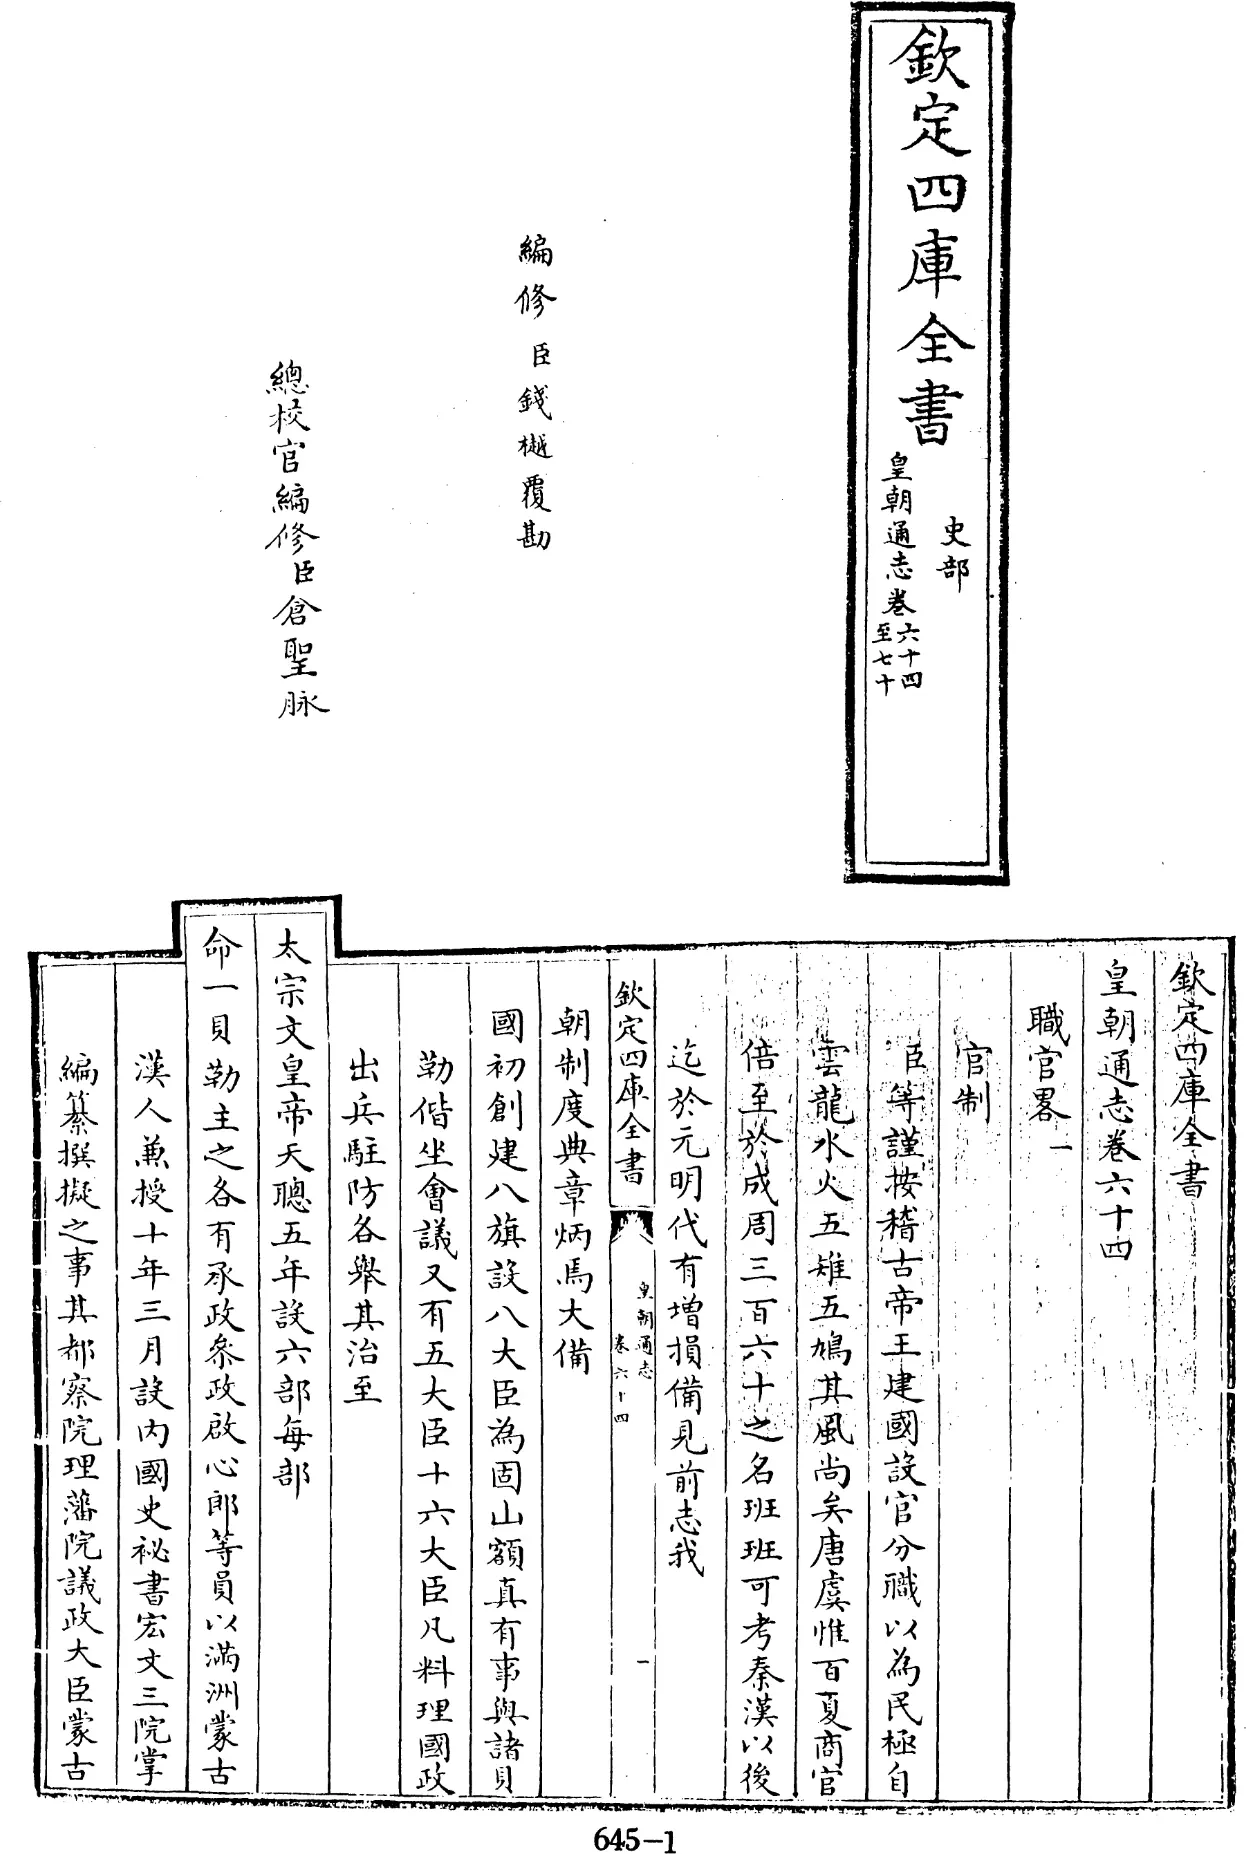 欽定四庫全書
史部
皇朝通志卷六十四至七十
編修臣錢樾覆勘
總校官編修臣倉聖脉
欽定四庫全書
皇朝通志卷六十四
職官畧一
官制
臣等謹按稽古帝王建國設官分職以為民極自
雲龍水火五雉五鳩其風尚矣唐虞惟百夏商官
倍至於成周三百六十之名班班可考秦漢以後
迄於元明代有增損備見前志我
欽定四庫全書
皇朝通志
卷六十四
一
朝制度典章炳焉大備
國初創建八旗設八大臣為固山額真有事與諸貝
勒偕坐會議又有五大臣十六大臣凡料理國政
出兵駐防各舉其治至
太宗文皇帝天聰五年設六部每部
命一貝勒主之各有承政叅政啟心郎等員以滿洲蒙古
漢人兼授十年三月設内國史祕書宏文三院掌
編纂撰擬之事其都察院理藩院議政大臣蒙古
645-1